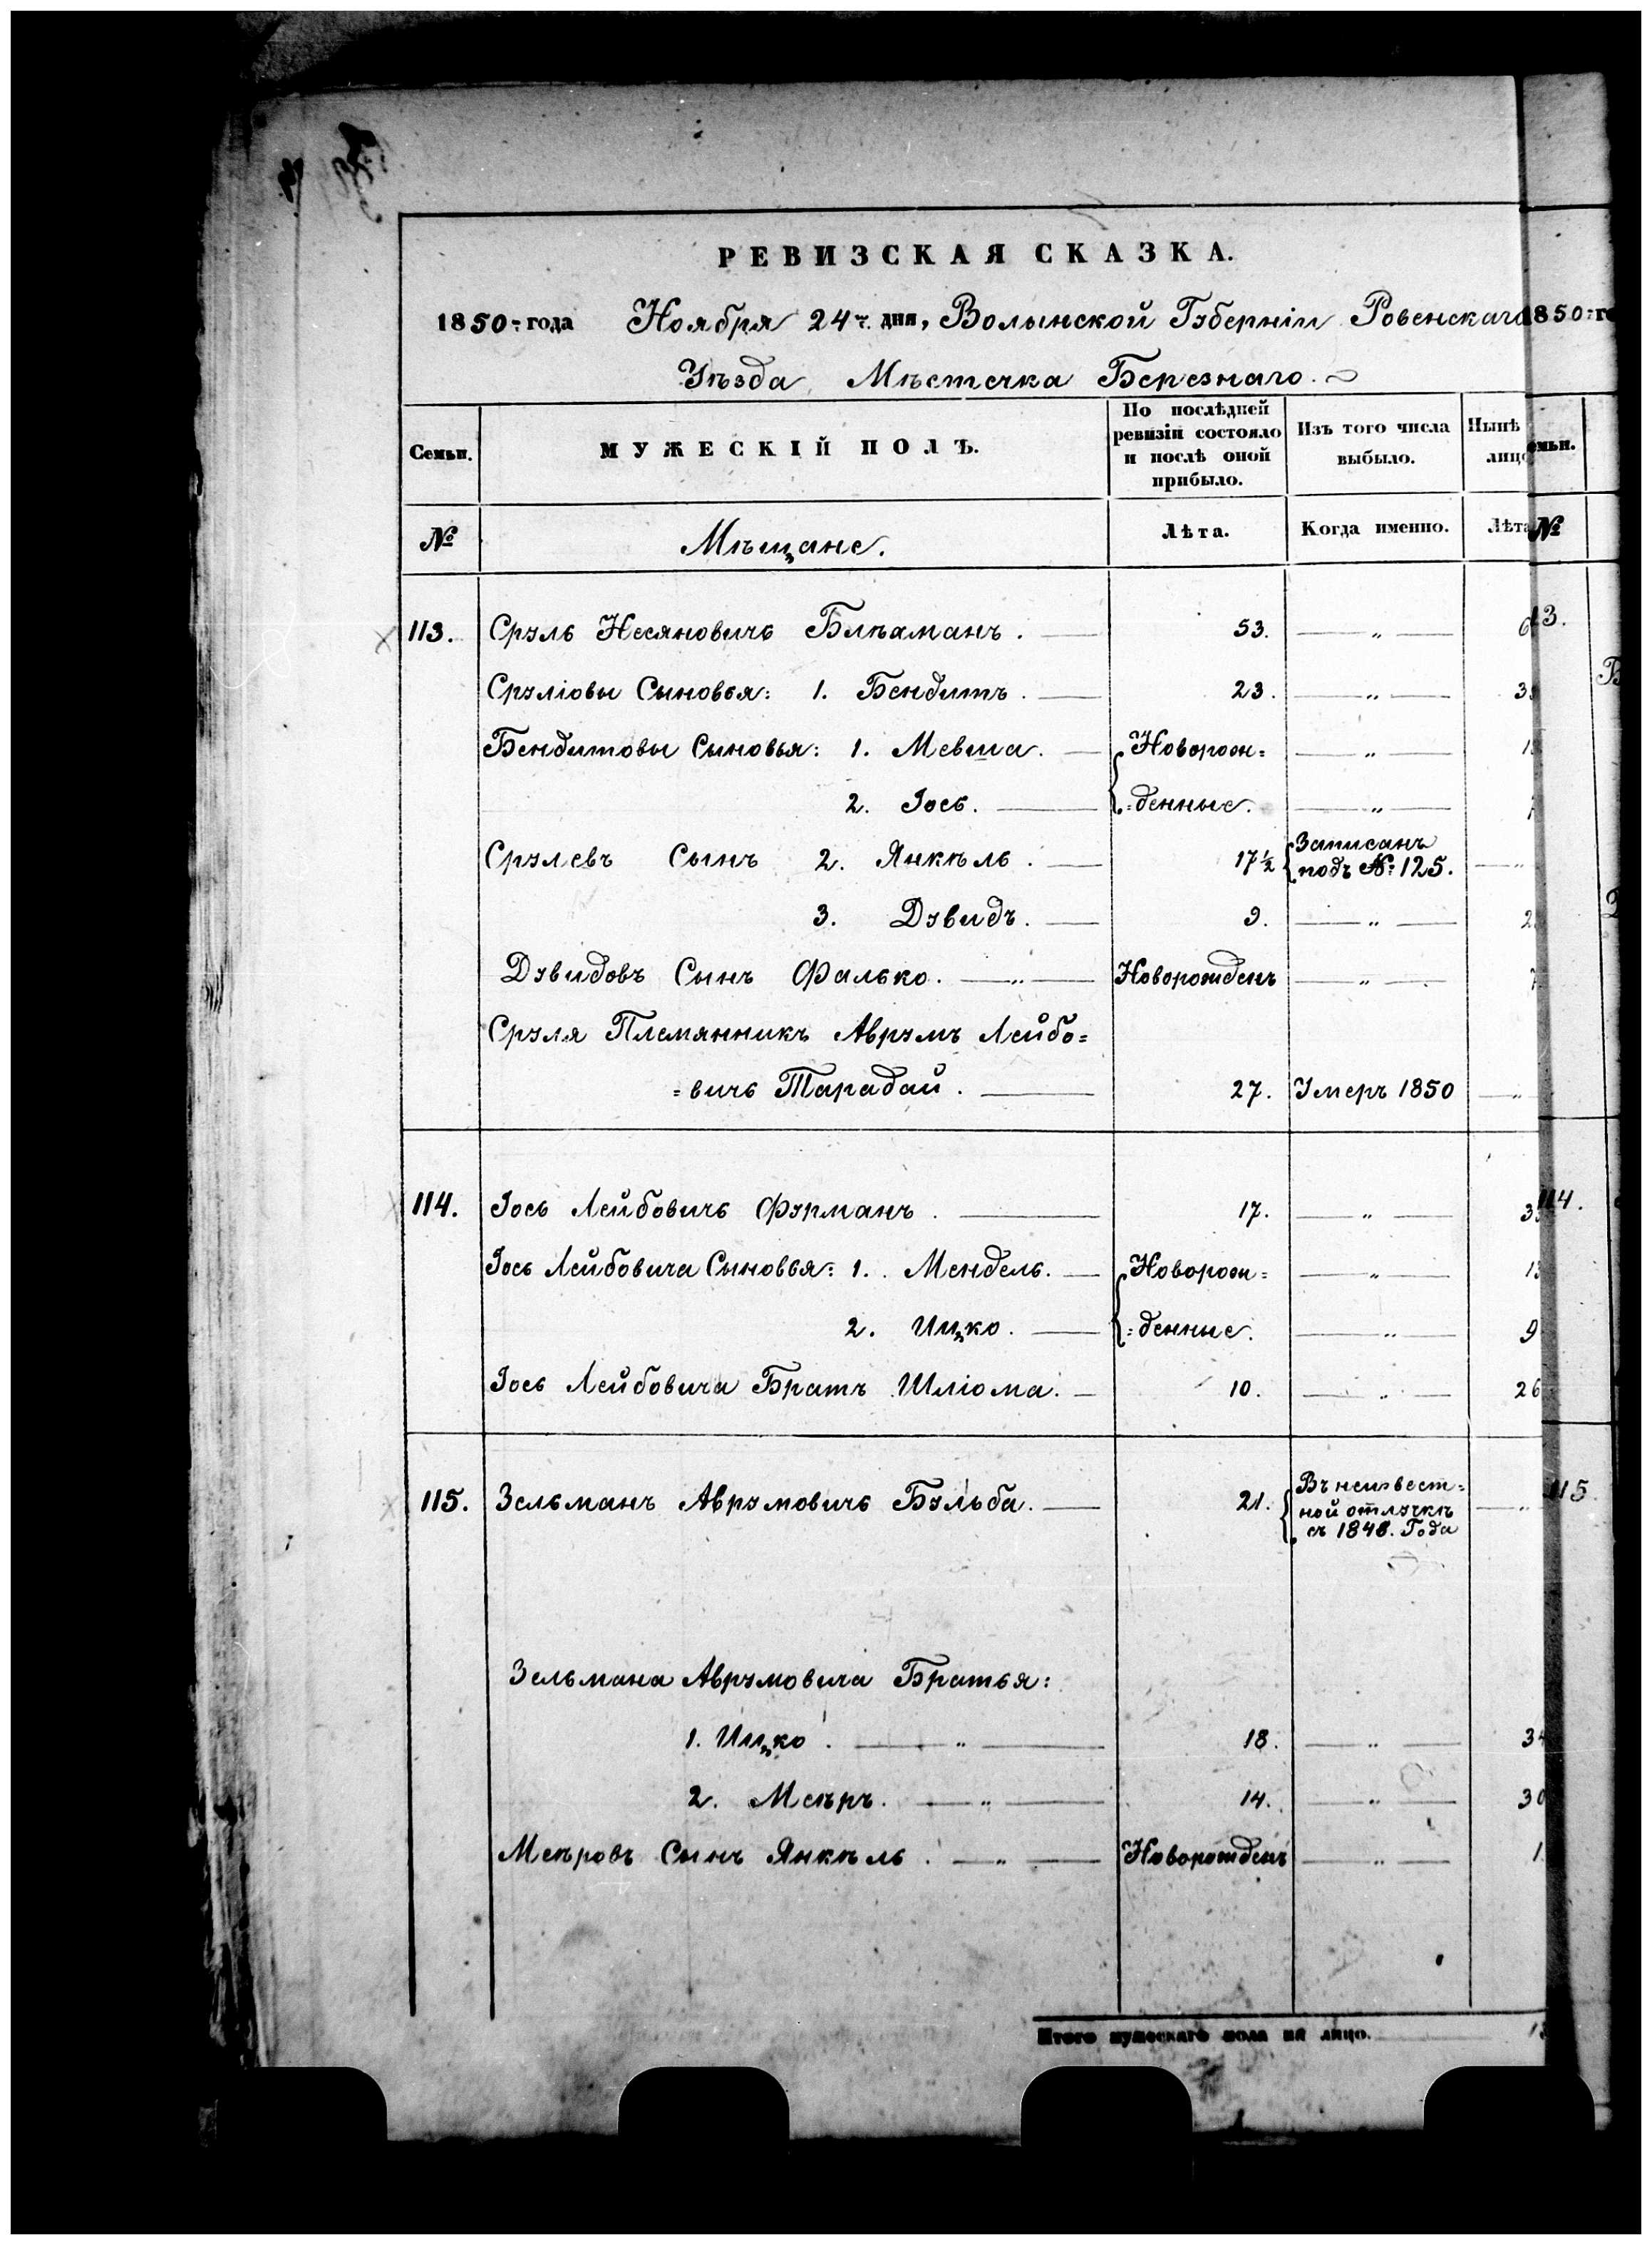 РЕВИЗСКАЯ СКАЗКА.
1850 года Ноября 24 дня, Волынской Губерніи Ровенскаго
Уѣзда Мѣстечка Березнаго.
Семьи. МУЖЕСКІЙ ПОЛЪ. По послѣдней ревизіи состояло и послѣ оной прибыло. Изъ того числа выбыло. Нынѣ лицо
№ Мѣщане. Лѣта. Когда именно. Лѣта
113. Сруль Несяновичъ Блѣаманъ. 53. — „ —
Сруліовы Сыновья: 1. Бендитъ. 23. — „ —
Бендитовы Сыновья: 1. Мевша. Новорож= — „ —
2. Іось. =денные. — „ —
Срулевъ Сынъ 2. Янкѣль. 17½ Записанъ подъ №: 125. — „
3. Дувидъ. 9. — „ —
Дувидовъ Сынъ Фалько. — „ — Новорожденъ — „ —
Сруля Племянникъ Аврумъ Лейбо=
=вичь Тарадай. 27. Умеръ 1850 — „
114. Іось Лейбовичь Фурманъ. 17. — „ —
Іось Лейбовича Сыновья: 1. Мендель. Новорож= — „ —
2. Ицко. =денные. — „ — 9
Іось Лейбовича Братъ Шліома. 10. — „ — 26
115. Зельманъ Аврумовичь Бульба. 21. Въ неизвест=
ной отлучкѣ
съ 1848. Года
Зельмана Аврумовича Братья:
1. Ицко. — „ — 18. — „ — 34
2. Меѣръ. — „ — 14. — „ — 30
Меѣровъ Сынъ Янкѣль. — „ — Новорожденъ — „ — 1
Итого мужескаго пола на лицо.